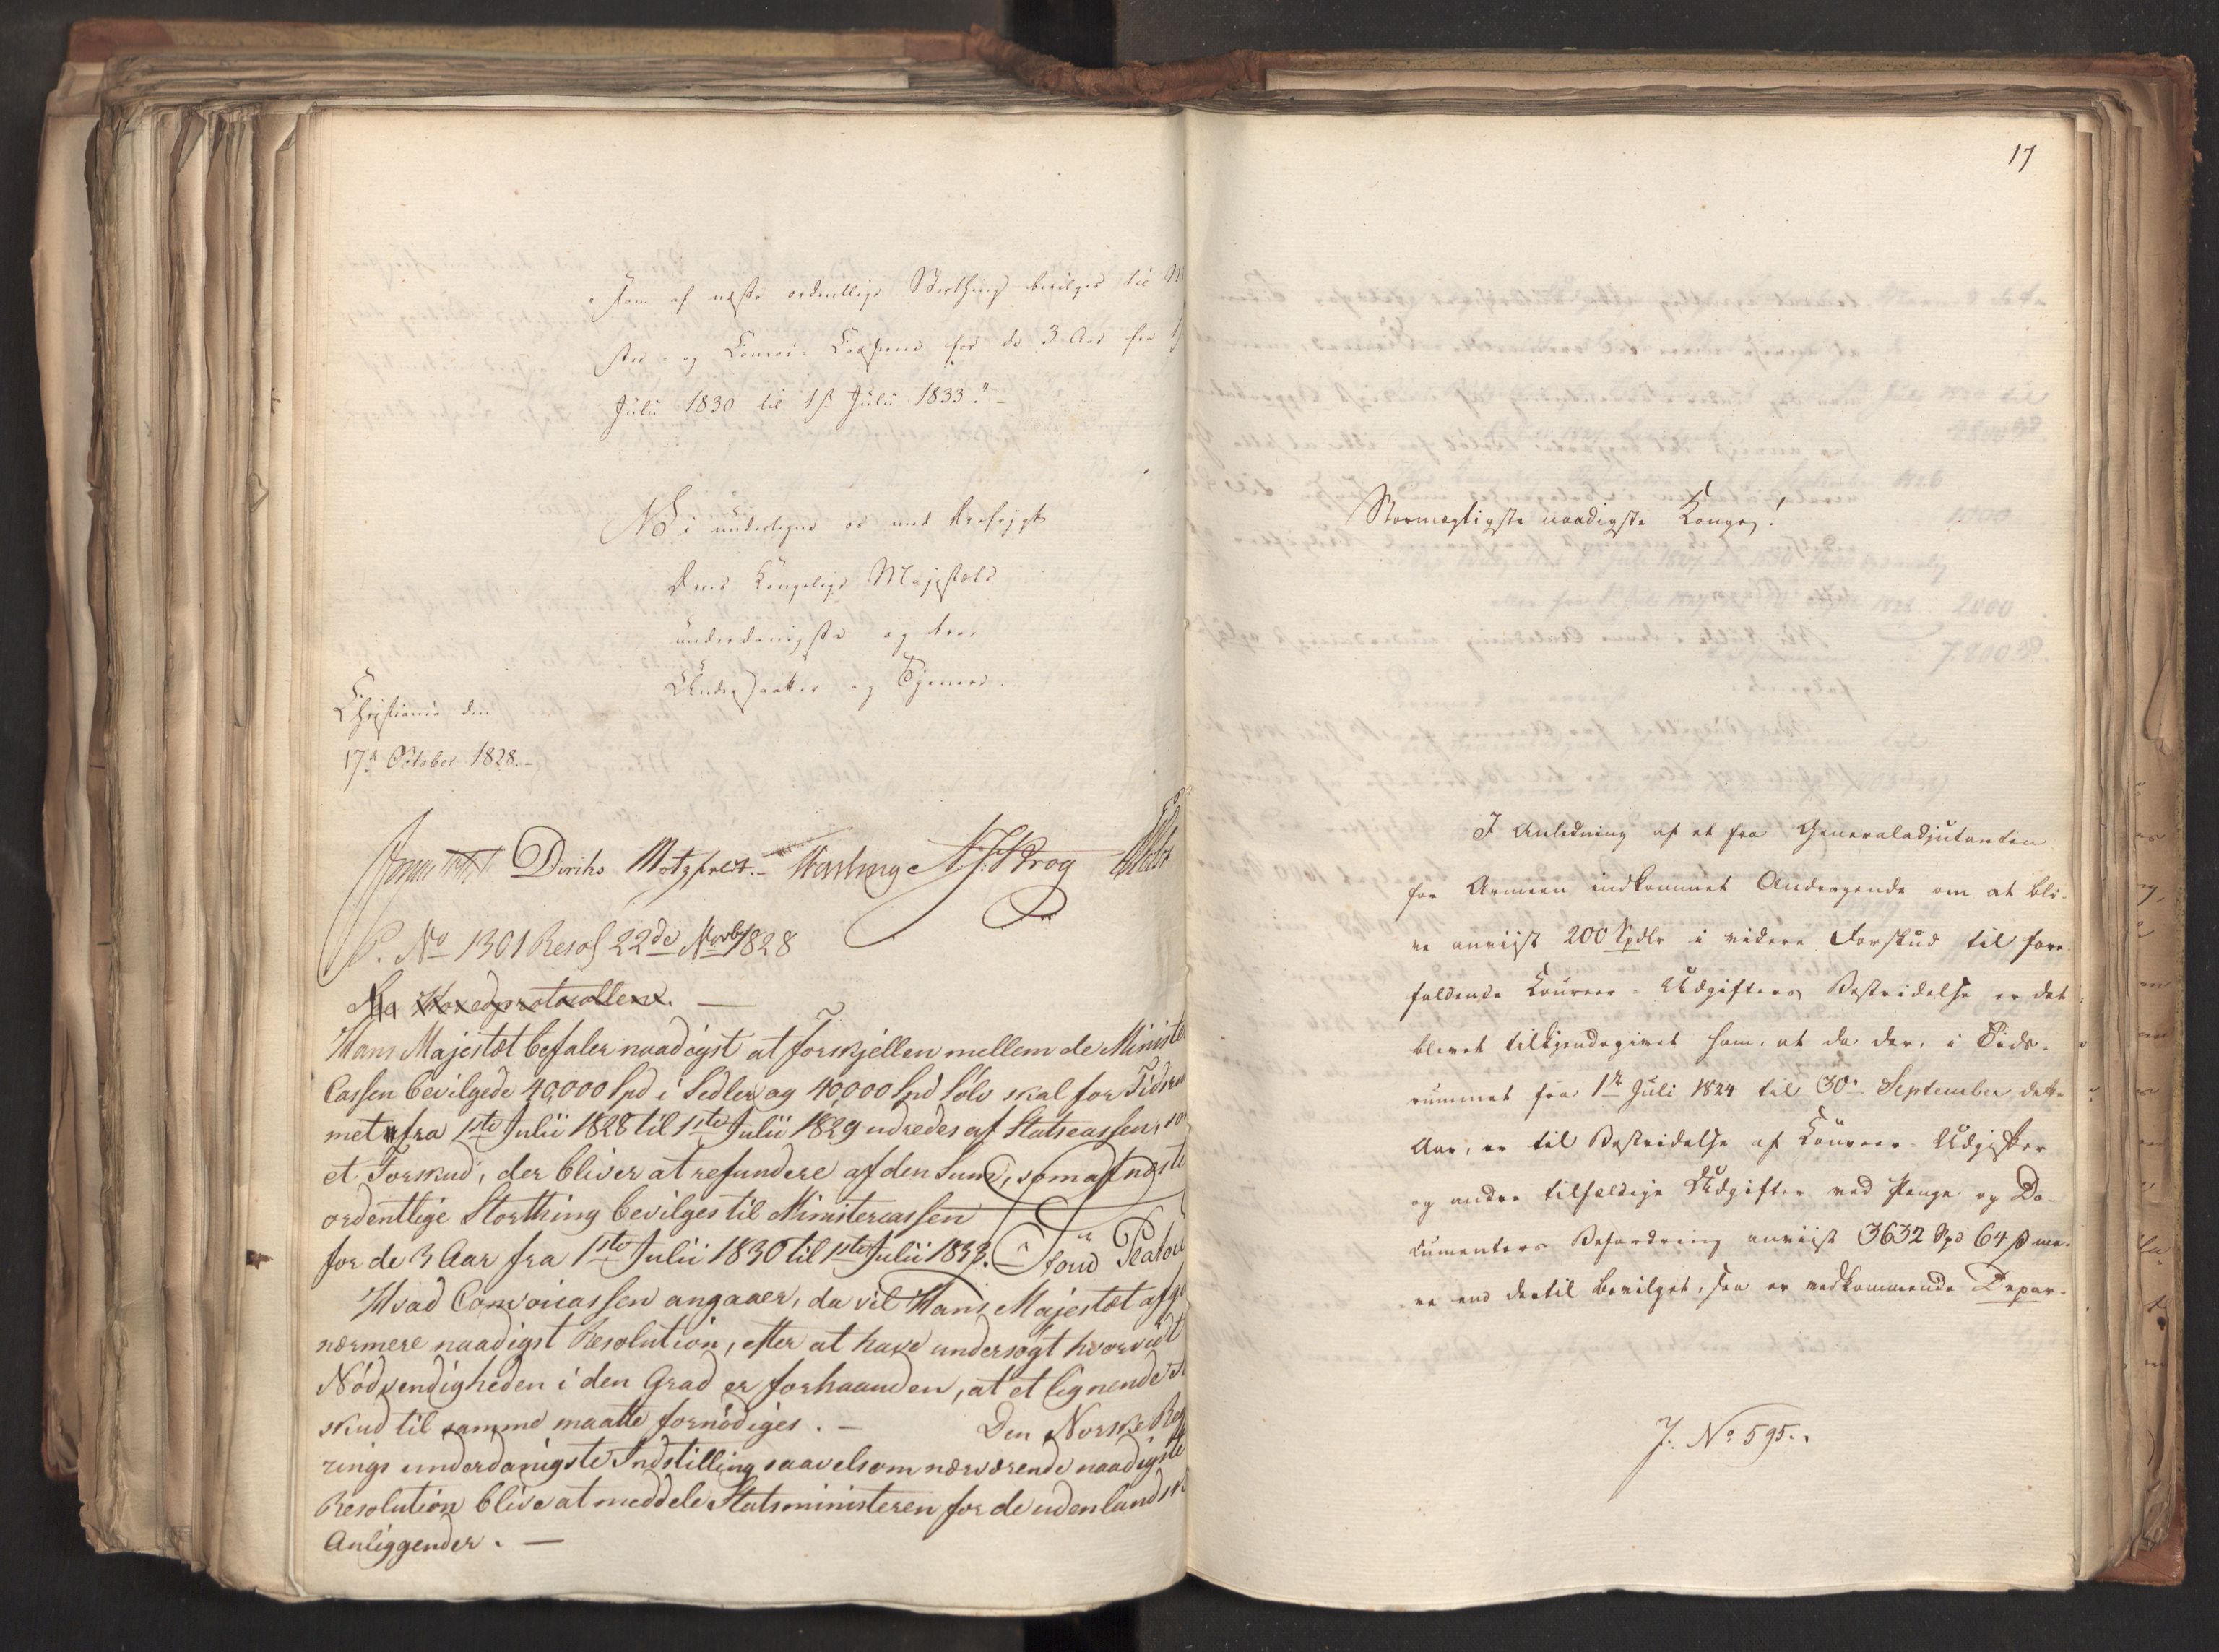 som af næste ordentlige Storthing bevilges til
ster- og Convoi-Casserne for de 3 Aar fra
Julii 1830 til 1ste Julii 1833."
Vi undertegne os med Ærefrygt
Deres Kongelige Majestæts
underdanigste og troe
Undersaatter og Tjenere.
Christiania den
17de October 1828.
Diriks Motzfeldt. N. J. Krog
P. No 1301 Resol 22de Novbr 1828
Fra Hovedprotocollen. —
Hans Majestæt befaler naadigst at Forskjellen mellem de Ministe
Cassen bevilgede 40,000 Spd i Sedler og 40,000 Spd Sölv skal for Tidsru
met fra 1ste Julii 1828 til 1ste Julii 1829 udredes af Statscassen, so
et Forskud, der bliver at refundere af den Sum, som af næste
ordentlige Storthing bevilges til Ministercassen
for de 3 Aar fra 1ste Julii 1830 til 1ste Julii 1833.
Hvad Convoicassen angaaer, da vil Hans Majestæt afgi
nærmere naadigst Resolution, efter at have undersøgt hvorvidt
Nödvendigheden i den Grad er forhaanden, at et lignende
skud til samme maatte fornödiges. — Den Norske Reg
rings underdanigste Indstilling saavelsom nærværende naadigste
Resolution blive at meddele Statsministeren for de udenlandsk
Anliggender. —
17
Stormægtigste naadigste Konge!
I Anledning af et fra Generaladjutanten
for Armeen indkommet Andragende om at bli-
ve anviist 200 Spdlr i videre Forskud til fore-
faldende Coureer-Udgifters Bestridelse er det
blevet tilkjendegivet ham, at da der, i Tids-
rummet fra 1ste Juli 1824 til 30te September dette
Aar, er til Bestridelse af Coureer-Udgifter
og andre tilfældige Udgifter ved Penge og Do-
cumenters Befordring anviist 3632 Spd 64 ß me-
re end dertil bevilget, saa er vedkommende Depar-
J. No 595.